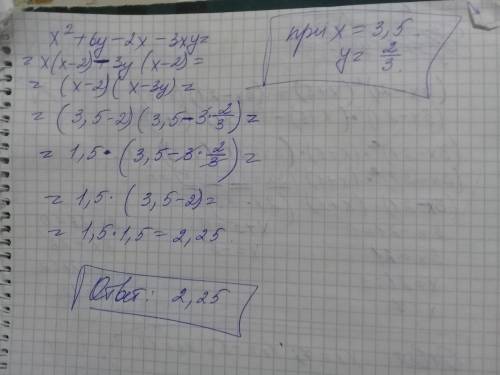 x² + 6y - 2x - 3xy =
= x(x-2) - 3y (x-2) =
= (x-2)(x-3y) =
= (3,5-2)(3,5-3·2/3) =
= 1,5·(3,5-3·2/3) =
= 1,5·(3,5-2) =
= 1,5·1,5 = 2,25
Ответ: 2,25
при x = 3,5
y = 2/3